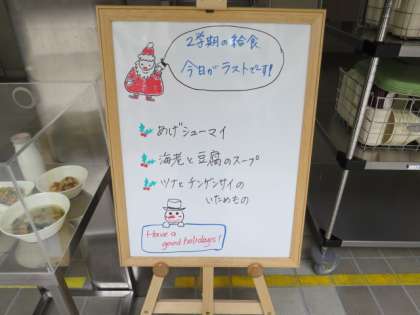 2学期の給食
今日がラストです!
あげシューマイ
海老と豆腐のスープ
ツナとチンゲンサイの
いためもの
Have a
good holidays!